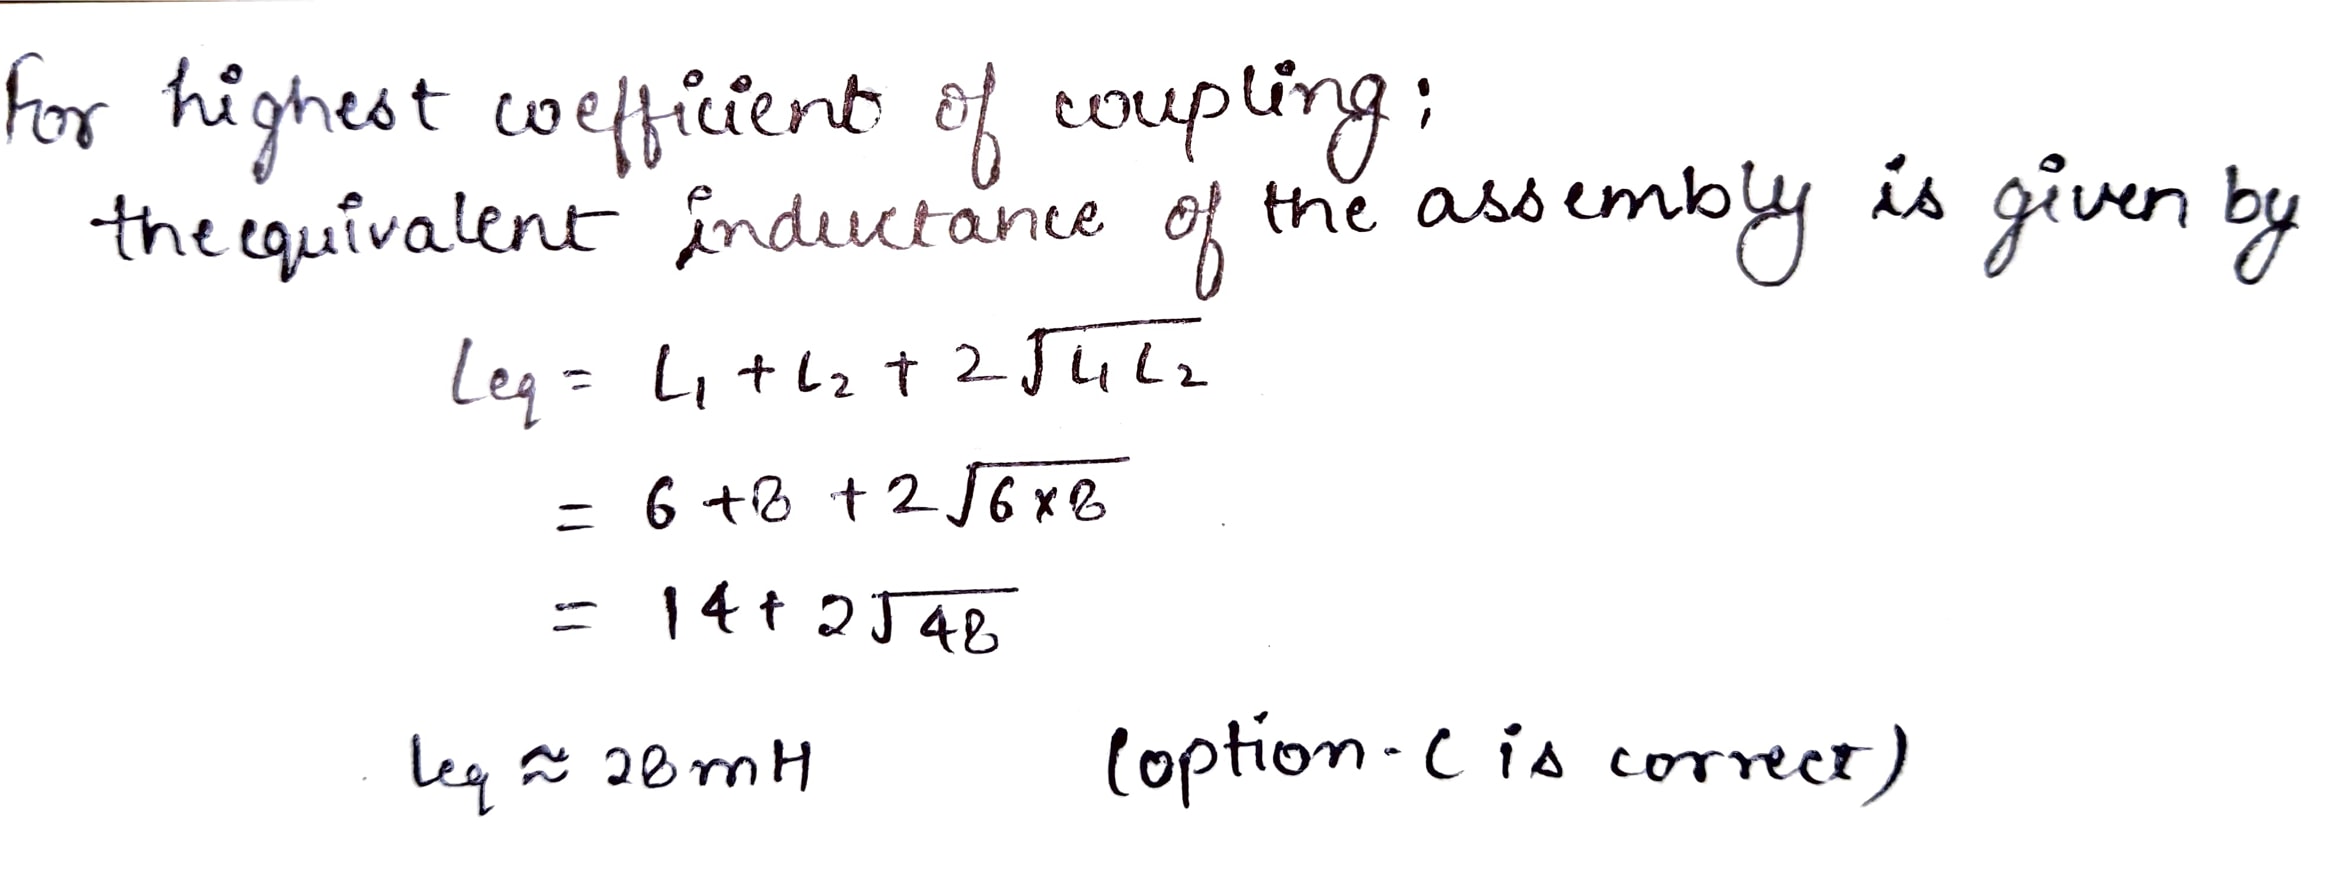 For highest coefficient of coupling;
the equivalent inductance of the assembly is given by
Leq = L₁ + L₂ + 2√L₁L₂
= 6 + 8 + 2√6×8
= 14 + 2√48
Leq ≈ 28mH (option-C is correct)